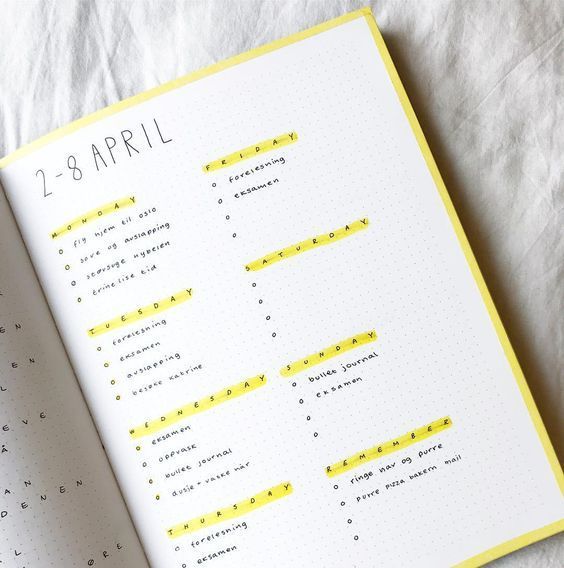 2-8 APRIL
MONDAY
fly hjem til oslo
sove og avslapping
støvsuge hybelen
trine lise tid
TUESDAY
forelesning
eksamen
avslapping
besøke katrine
WEDNESDAY
eksamen
oppvask
bullet journal
dusje + vaske hår
THURSDAY
forelesning
eksamen
FRIDAY
forelesning
eksamen
SATURDAY
SUNDAY
bullet journal
eksamen
REMEMBER
ringe nav og purre
purre pizza bakern mail
EN
EVE
Å
AN
DENEN
L
ØRE